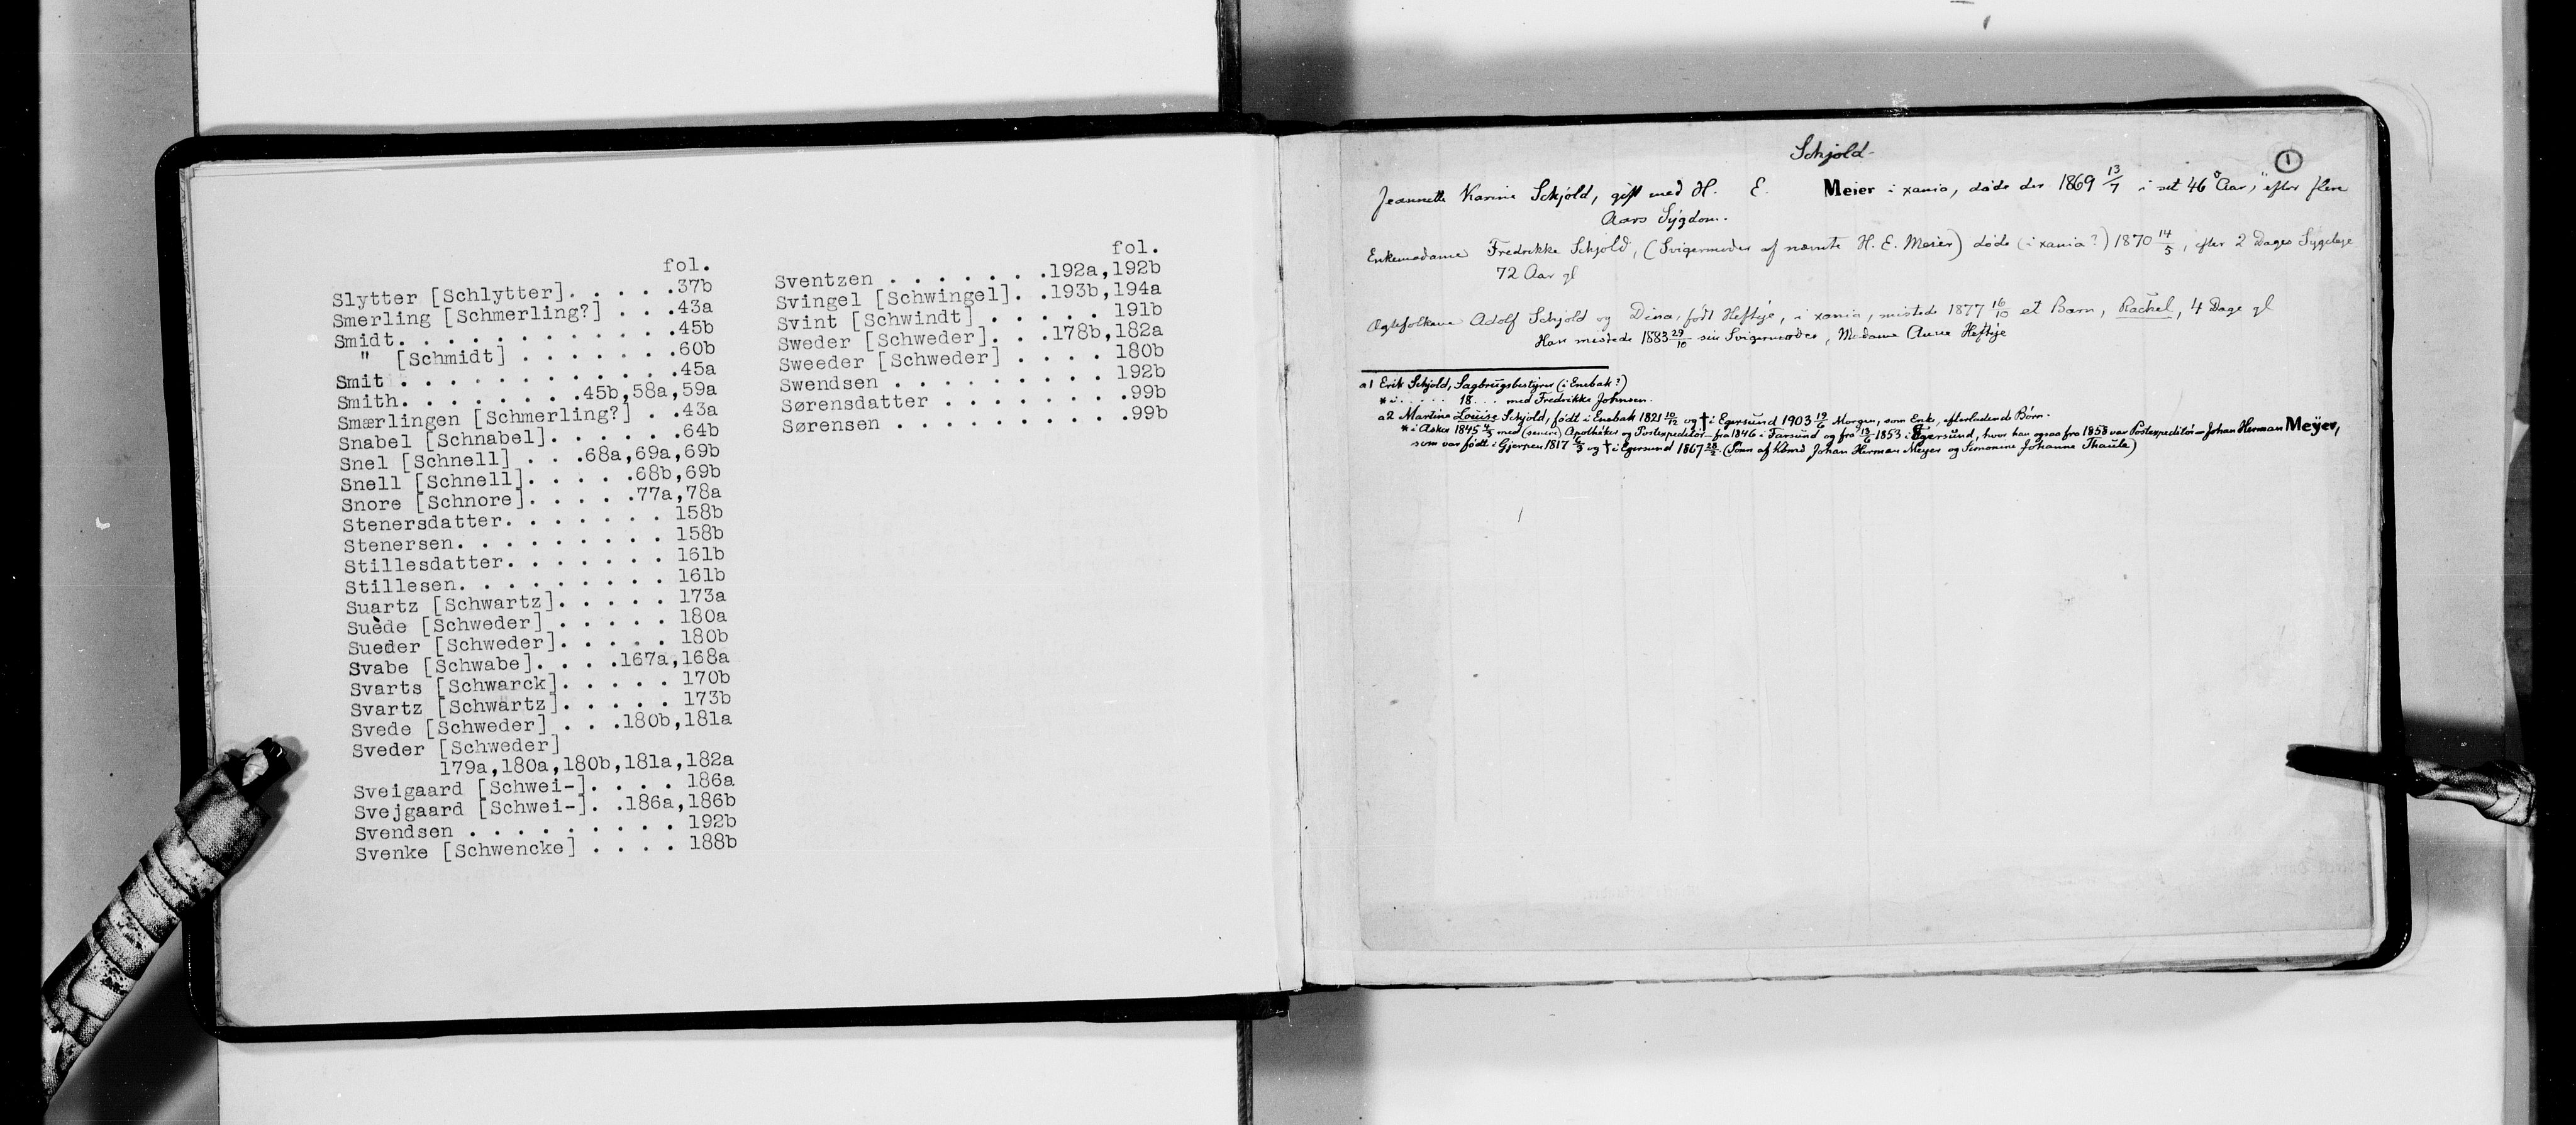 fol.
Slytter [Schlytter]. . . . .37b
Smerling [Schmerling?] . . .43a
Smidt. . . . . . . . . . . .45b
" [Schmidt] . . . . . . .60b
Smit . . . . . . . . . . . .45a
Smith. . . . . . . .45b,58a,59a
Smærlingen [Schmerling?] . .43a
Snabel [Schnabel]. . . . . .64b
Snel [Schnell] . . .68a,69a,69b
Snell [Schnell]. . . . .68b,69b
Snore [Schnore]. . . . .77a,78a
Stenersdatter. . . . . . . 158b
Stenersen. . . . . . . . . 158b
Stillesdatter. . . . . . . 161b
Stillesen. . . . . . . . . 161b
Suartz [Schwartz]. . . . . 173a
Suède [Schweder] . . . . . 180a
Sueder [Schweder]. . . . . 180b
Svabe [Schwabe]. . . .167a,168a
Svarts [Schwarck]. . . . . 170b
Svartz [Schwartz]. . . . . 173b
Svede [Schweder] . . .180b,181a
Sveder [Schweder]
179a,180a,180b,181a,182a
Sveigaard [Schwei-]. . . . 186a
Svejgaard [Schwei-]. .186a,186b
Svendsen . . . . . . . . . 192b
Svenke [Schwencke] . . . . 188b
fol.
Sventzen . . . . . . .192a,192b
Svingel [Schwingel]. .193b,194a
Svint [Schwindt] . . . . . 191b
Sweder [Schweder]. . .178b,182a
Sweeder [Schweder] . . . . 180b
Swendsen . . . . . . . . . 192b
Sørensdatter . . . . . . . .99b
Sørensen . . . . . . . . . .99b
Schjold
1
Jeannette Karine Schjold, gift med H. E. Meier i xania, døde der 1869 13/7 i sit 46° Aar, "efter flere
Aars Sygdom.
Enkemadame Fredrikke Schjold, (Svigermoder af nævnte H. E. Meier) døde (i xania?) 1870 14/5, efter 2 Dages Sygeleje
72 Aar gl
Ægtefolkene Adolf Schjold og Dina, født Heftije, i xania, mistede 1877 16/10 et Barn, Rachel, 4 Dage gl
Han mistede 1883 29/10 sin Svigermoder, Madame Anna Heftije
a1 Erik Schjold, Sagbrugsbestyrer (i Enebak?)
* i . . . . . 18 . . . med Fredrikke Johnsen.
a2 Martine Louise Schjold, født i Enebak 1821 10/12 og † i Egersund 1903 19/6 Morgen, som Enke, efterladende Børn.
* i Asker 1845 4/5 med (senere) Apotheker og Postexpeditør fra 1846 i Farsund og fra 13/6 1853 i Egersund, hvor han ogsaa fra 1858 var Postexpeditør Johan Herman Meÿer,
som var født i Gjerpen 1817 6/3 og † i Egersund 1867 28/2. (Sønn af Kbmd Johan Herman Meyer og Simonine Johanne Thaule)